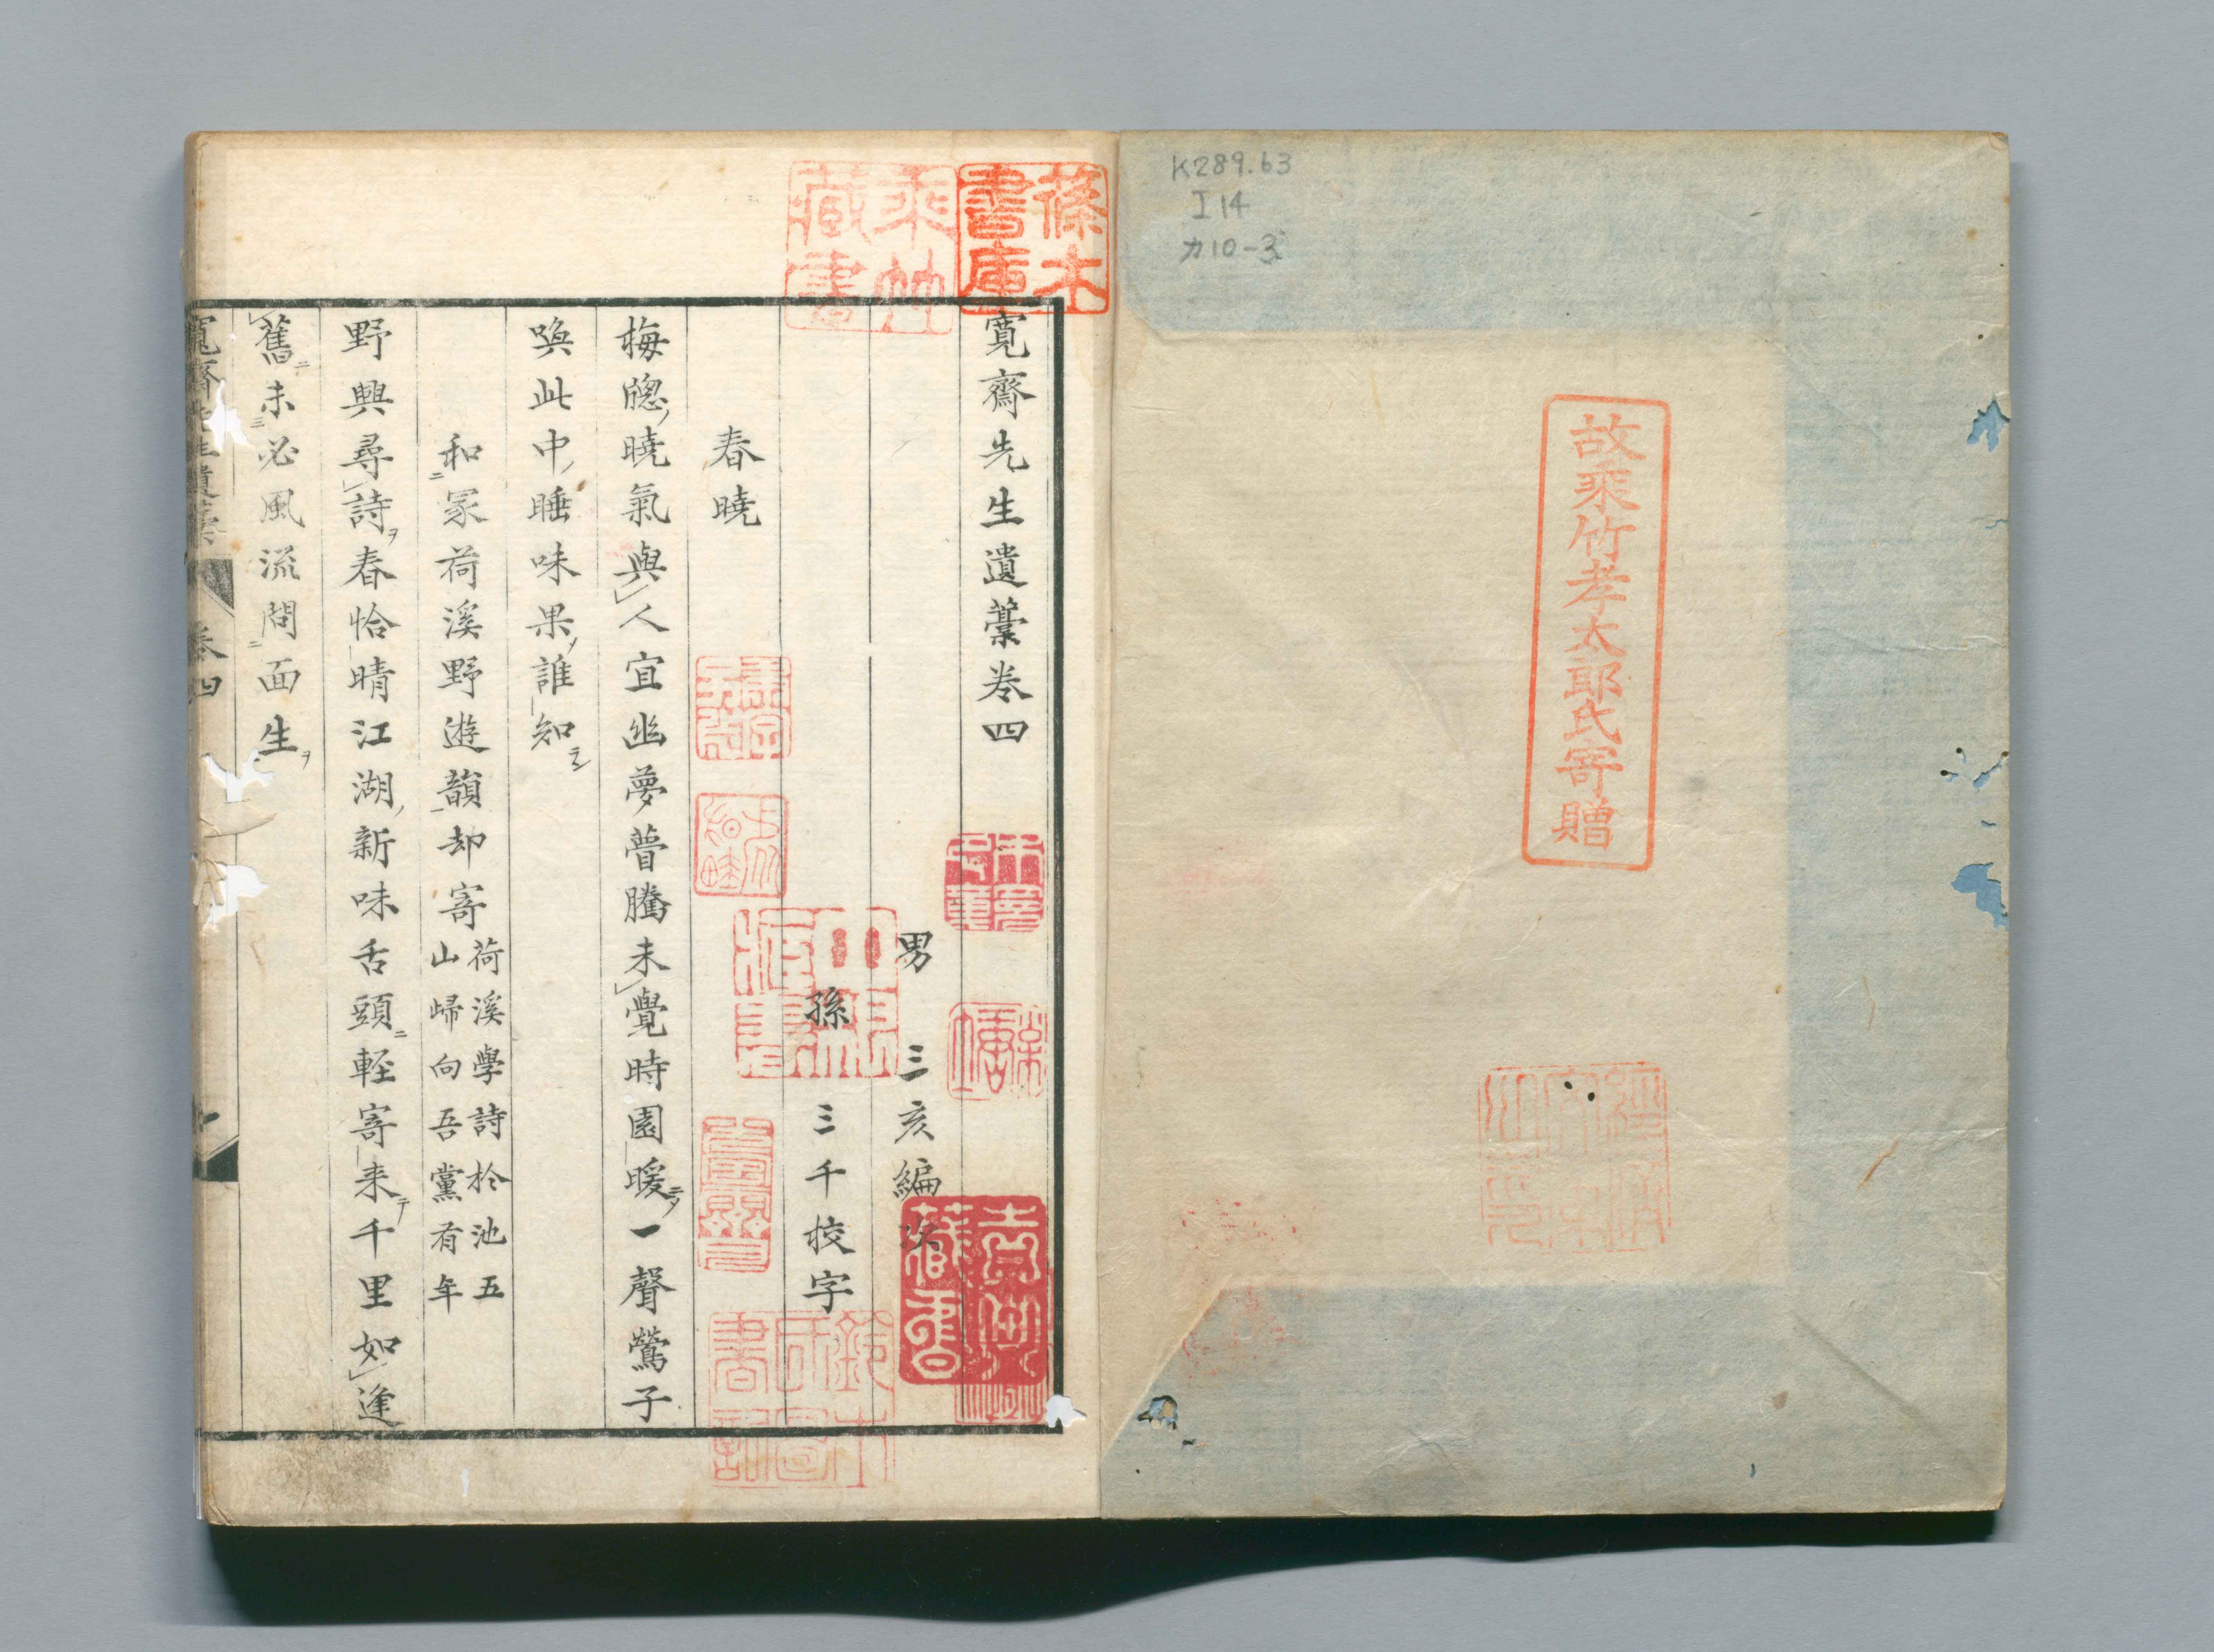 K289.63
I14
カ10-3
故乘竹孝太郎氏寄贈
篠木書庫
乘竹藏書
寬齋先生遺藁卷四
男三亥編次
孫三千校字
春曉
梅牕曉氣與人宜幽夢瞢騰未覺時園暖一聲鶯子
喚此中睡味果誰知
和冢荷溪野遊韻却寄
荷溪學詩於池五
山歸向吾黨有年
野興尋詩春恰晴江湖新味舌頭輕寄来千里如逢
舊未必風流問面生
卷四
一